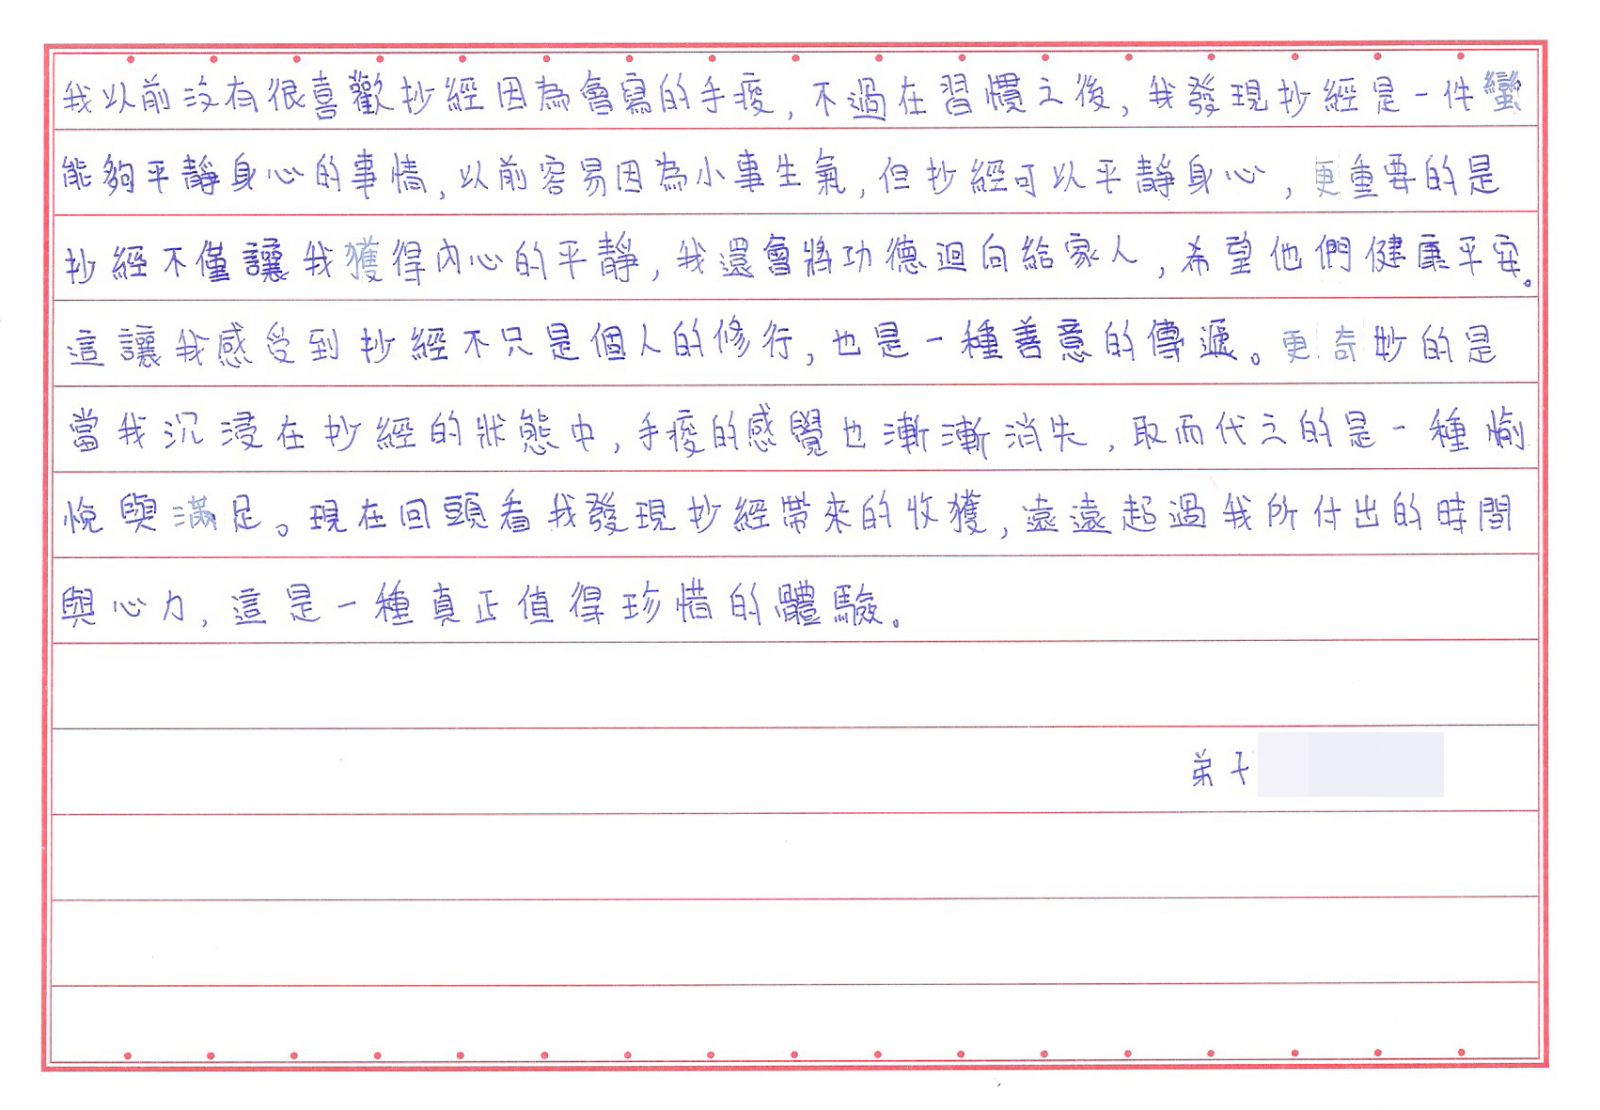 我以前沒有很喜歡抄經因為會寫的手痠，不過在習慣之後，我發現抄經是一件蠻
能夠平靜身心的事情，以前容易因為小事生氣，但抄經可以平靜身心，更重要的是
抄經不僅讓我獲得內心的平靜，我還會將功德迴向給家人，希望他們健康平安。
這讓我感受到抄經不只是個人的修行，也是一種善意的傳遞。更奇妙的是
當我沉浸在抄經的狀態中，手痠的感覺也漸漸消失，取而代之的是一種愉
悅與滿足。現在回頭看我發現抄經帶來的收獲，遠遠超過我所付出的時間
與心力，這是一種真正值得珍惜的體驗。
弟子